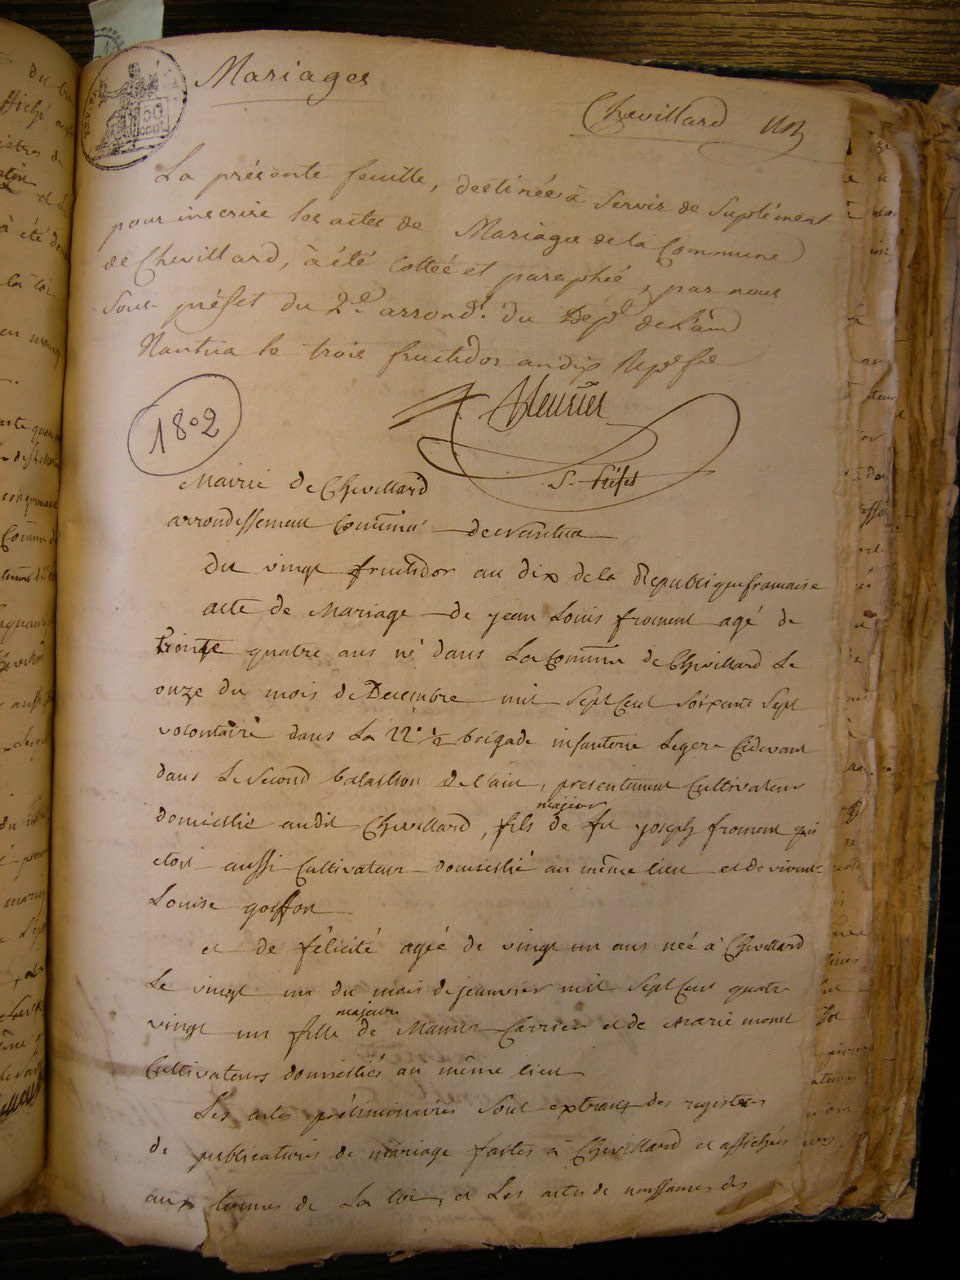 Mariages
Chevillard
50
La présente feuille, destinées à Servir de Suplément
pour inscrire les actes de Mariages de la Commune
de Chevillard, à été Cottée et paraphée, par nous
Sous-préfet du 2e arrond.t du Dép.t de L'ain
Nantua le trois fructidor an dix Rep.e f.se
S.-Préfet
1802
Mairie de Chevillard
arrondissement Commnal de Nantua
Du vingt fructidor an dix de la Republique francaise
acte de Mariage de jean Louis froment agé de
trente quatre ans né dans La Commne de Chevillard Le
onze du mois de Decembre mil Sept Cent Soixante Sept
volontaire dans La 22e 1/2 brigade infanterie Legere Cidevant
dans Le Second bataillon de l'ain, presentement Cultivateur
majeur
domicilié audit Chevillard, fils de feu joseph froment qui
etoit aussi Cultivateur domicilié au même lieu et de vivante
Louise goiffon
et de félicité agée de vingt un ans née à Chevillard
Le vingt un du mois de jeanvier mil Sept Cent quatre
majeure
vingt un fille de Carrier et de Marie monet
Cultivateurs domiciliés au même lieu
Les actes préliminaires Sont extraits des registres
de publications de mariage faites à Chevillard et affichées
aux termes de La loi, et Les actes de naissances des